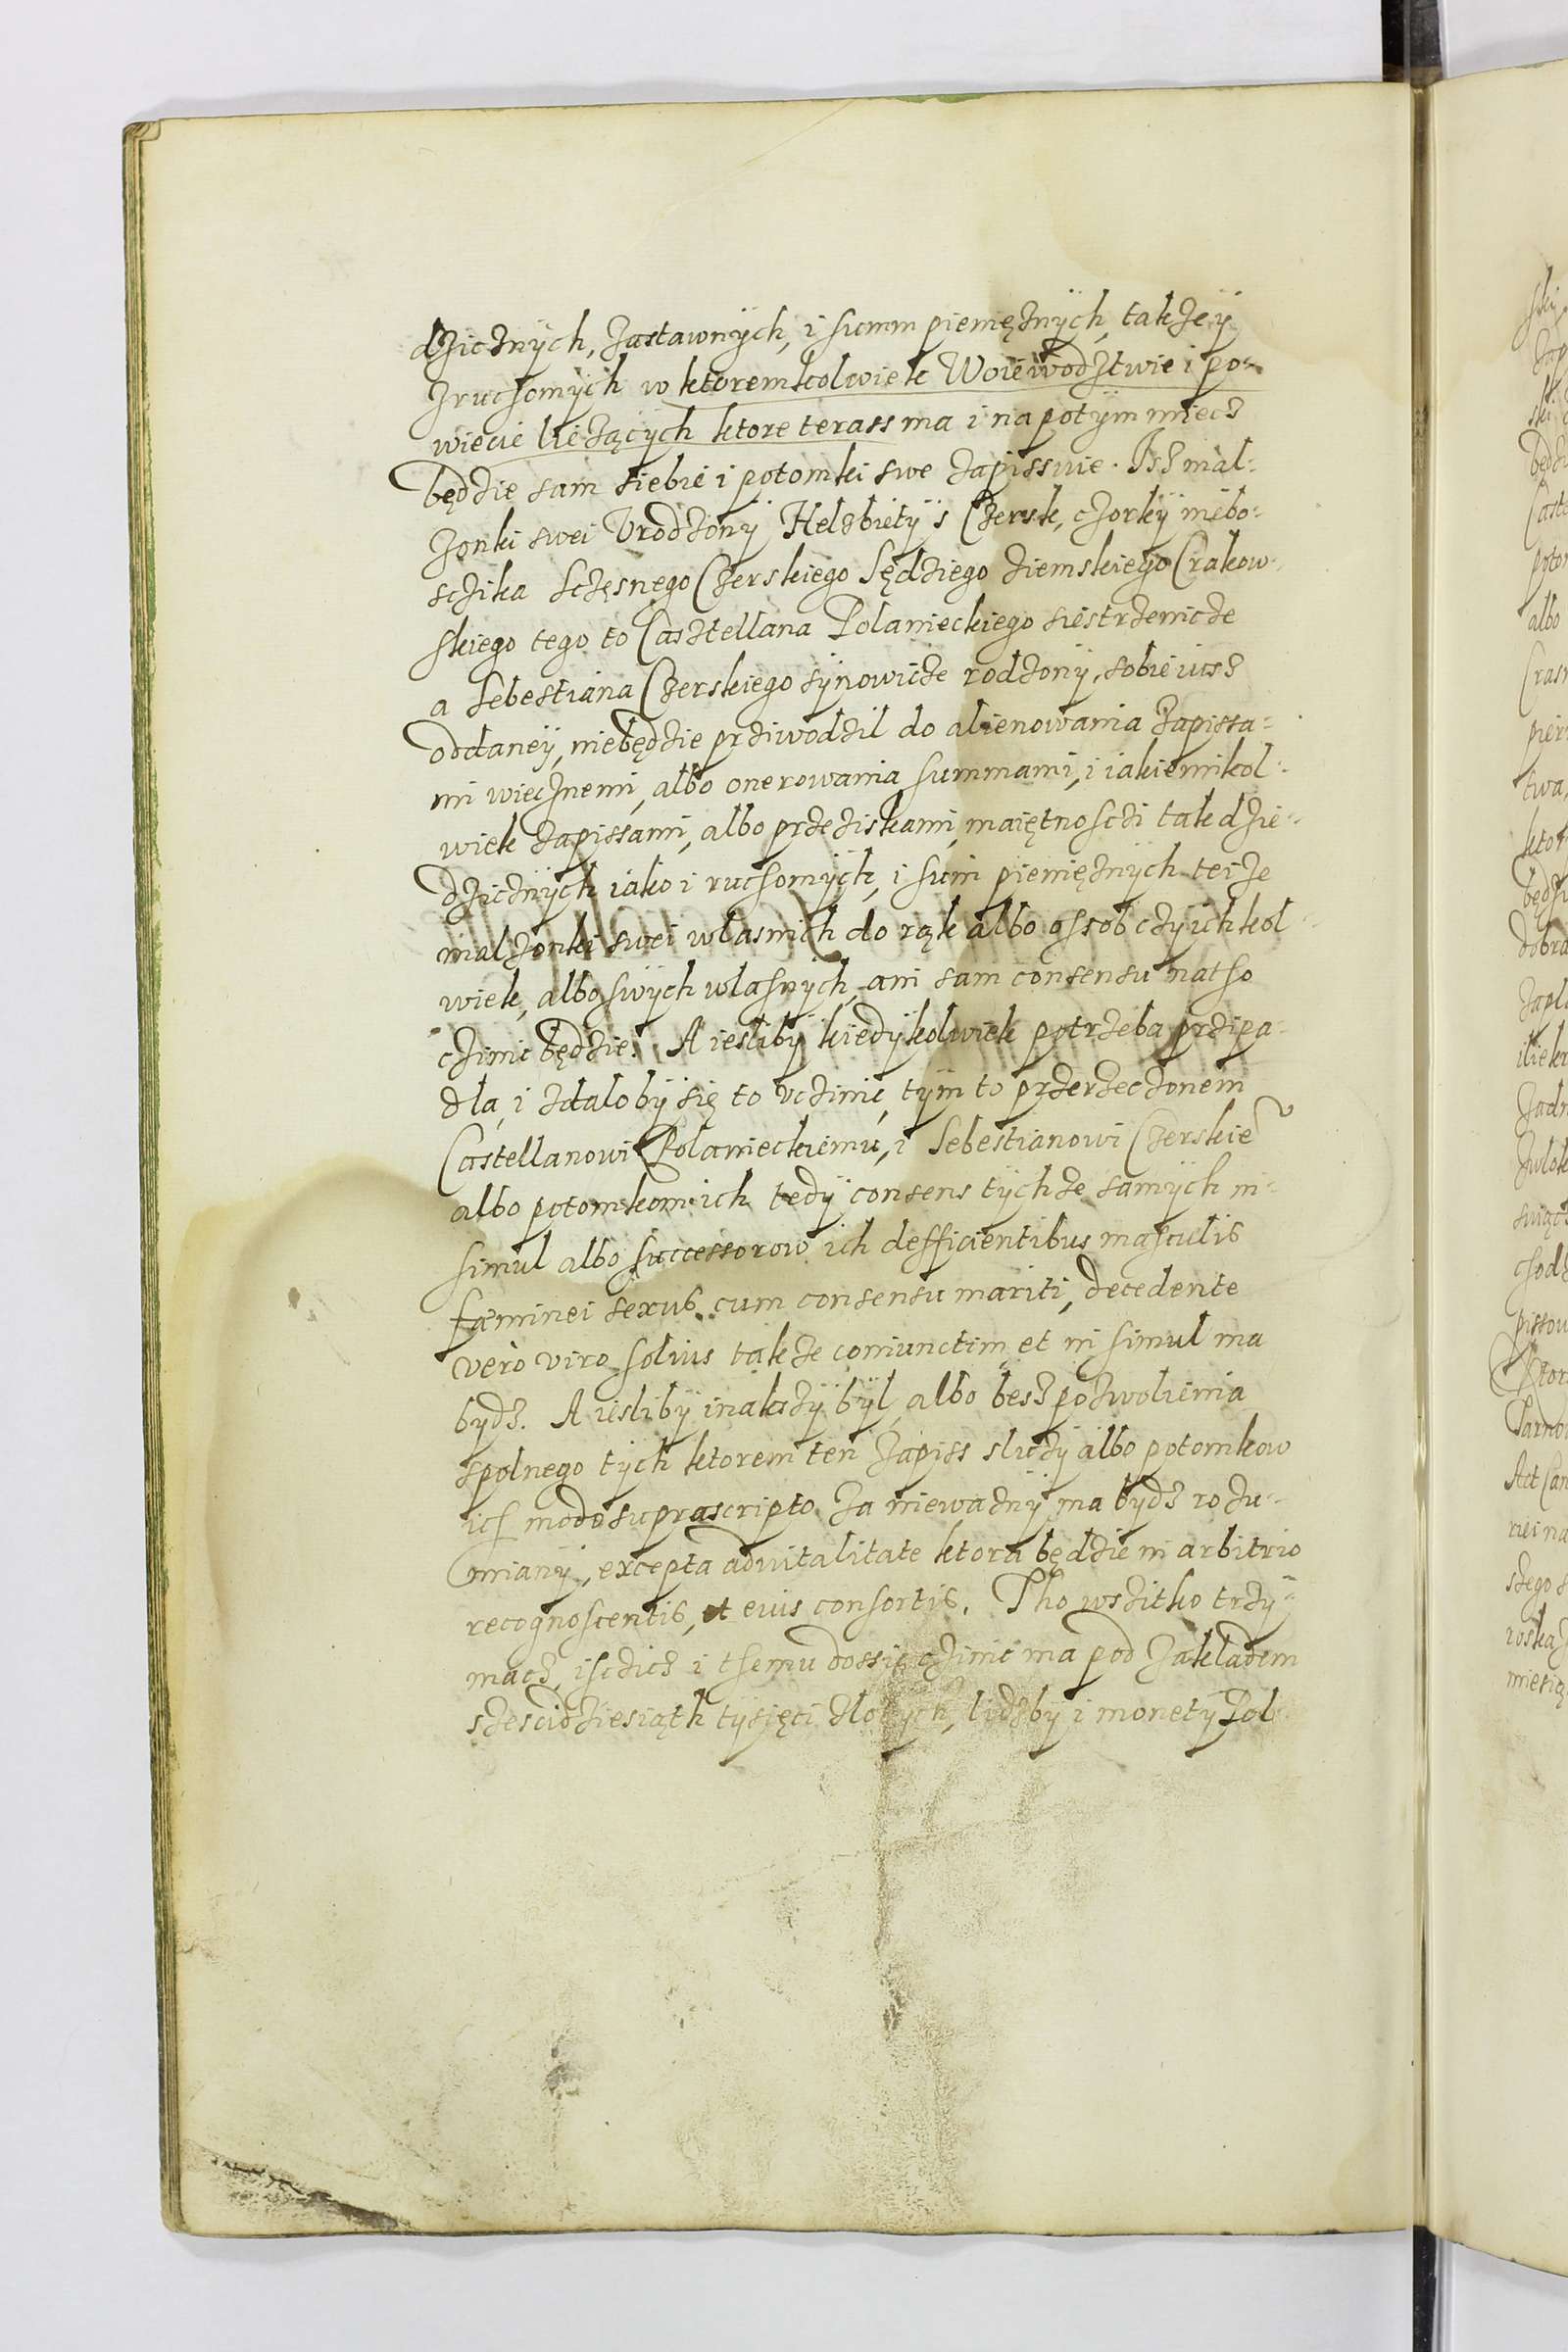 dzicznÿch, zastawnÿch, i summ pieniężnÿch, takze ÿ
zruchomÿch w ktoremkolwiek Woiewodztwie i po-
wiecie lieżącÿch ktore terass ma i napotÿm miecz
będzie sam siebie i potomki swe zapissuie. Isz mal-
zonki swei Vrodzonÿ Helzbietÿ s Czersk, czorkÿ niebo-
sczika Sczęsnego Czerskiego Sędziego ziemskiego Crakow-
skiego tego to Casztellana Polanieckiego siestrzenicze
a Sebestiana Czerskiego sÿnowicze rodzonÿ, sobie iusz
oddaneÿ, niebędzie prziwodzil do alienowania zapissa-
mi wiecznemi, albo onerowania summami, i iakiemikol-
wiek zapissami, albo przeziskami, maiętnosczi tak dzie-
dzicznÿch iako i ruchomÿch, i sum pieniężnÿch teize
malzonki swei wlasnich do rąk albo ossob czÿichkol-
wiek, albo swÿch wlasnÿch, ani sam consensu natho
czinic będzie. A iesliby kiedÿkolwiek potrzeba przipa-
dla, i zdalobÿ się to vczinic, tÿm to przerzeczonem
Castellanowi Polanieckiemu, i Sebestianowi Czerskie
albo potomkom ich tedÿ consens tÿchze samÿch in
simul albo successorow ich defficientibus masculis
fæminei sexus cum consensu mariti, decedente
vero viro solius takze coniunctim et in simul ma
bydz. A iesliby inakszÿ bÿl, albo besz pozwolienia
spolnego tÿch ktorem ten zapiss sluzÿ albo potomkow
ich modo suprascripto za niewaznÿ ma bydz rozu-
mianÿ, excepta advitalitate ktora będzie in arbitrio
recognoscentis, et eius consortis. Tho wszitko trzÿ-
macz, isczicz i themu dossic czinic ma pod zakladem
szesciodziesiąth tÿsięci zlotÿch, lidzby i monetÿ Pol